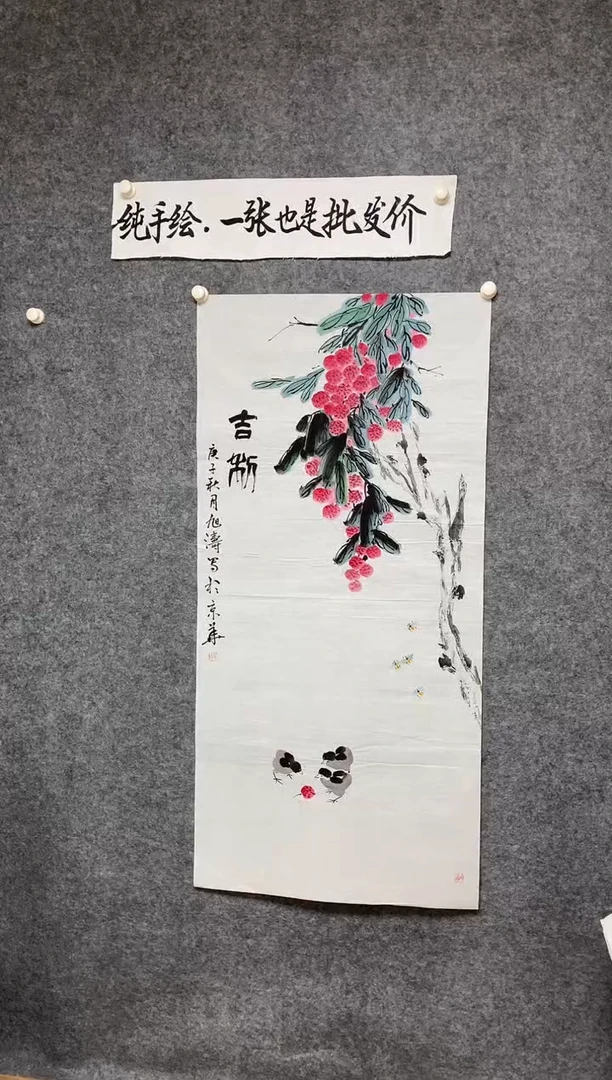 纯手绘.一张也是批发价
吉
庚子秋月旭濤写於京華